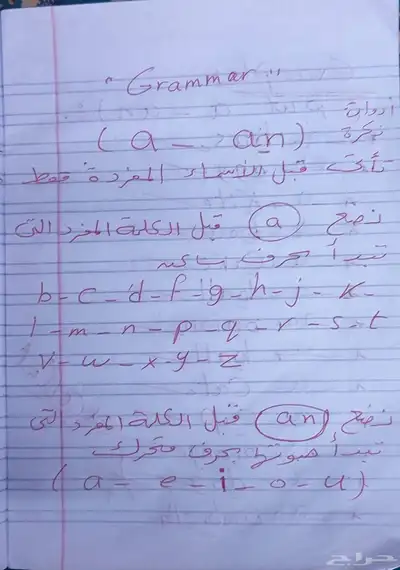 "Grammar"
أدوات
نكرة
(a - an)
تأتي قبل الأسماء المفردة فقط
نضع (a) قبل الكلمة المفرد التي
تبدأ بحرف ساكن
b - c - d - f - g - h - j - k -
l - m - n - p - q - r - s - t
v - w - x - y - z
نضع (an) قبل الكلمة المفرد التي
تبدأ صوتها بحرف متحرك
(a - e - i - o - u)
حراج